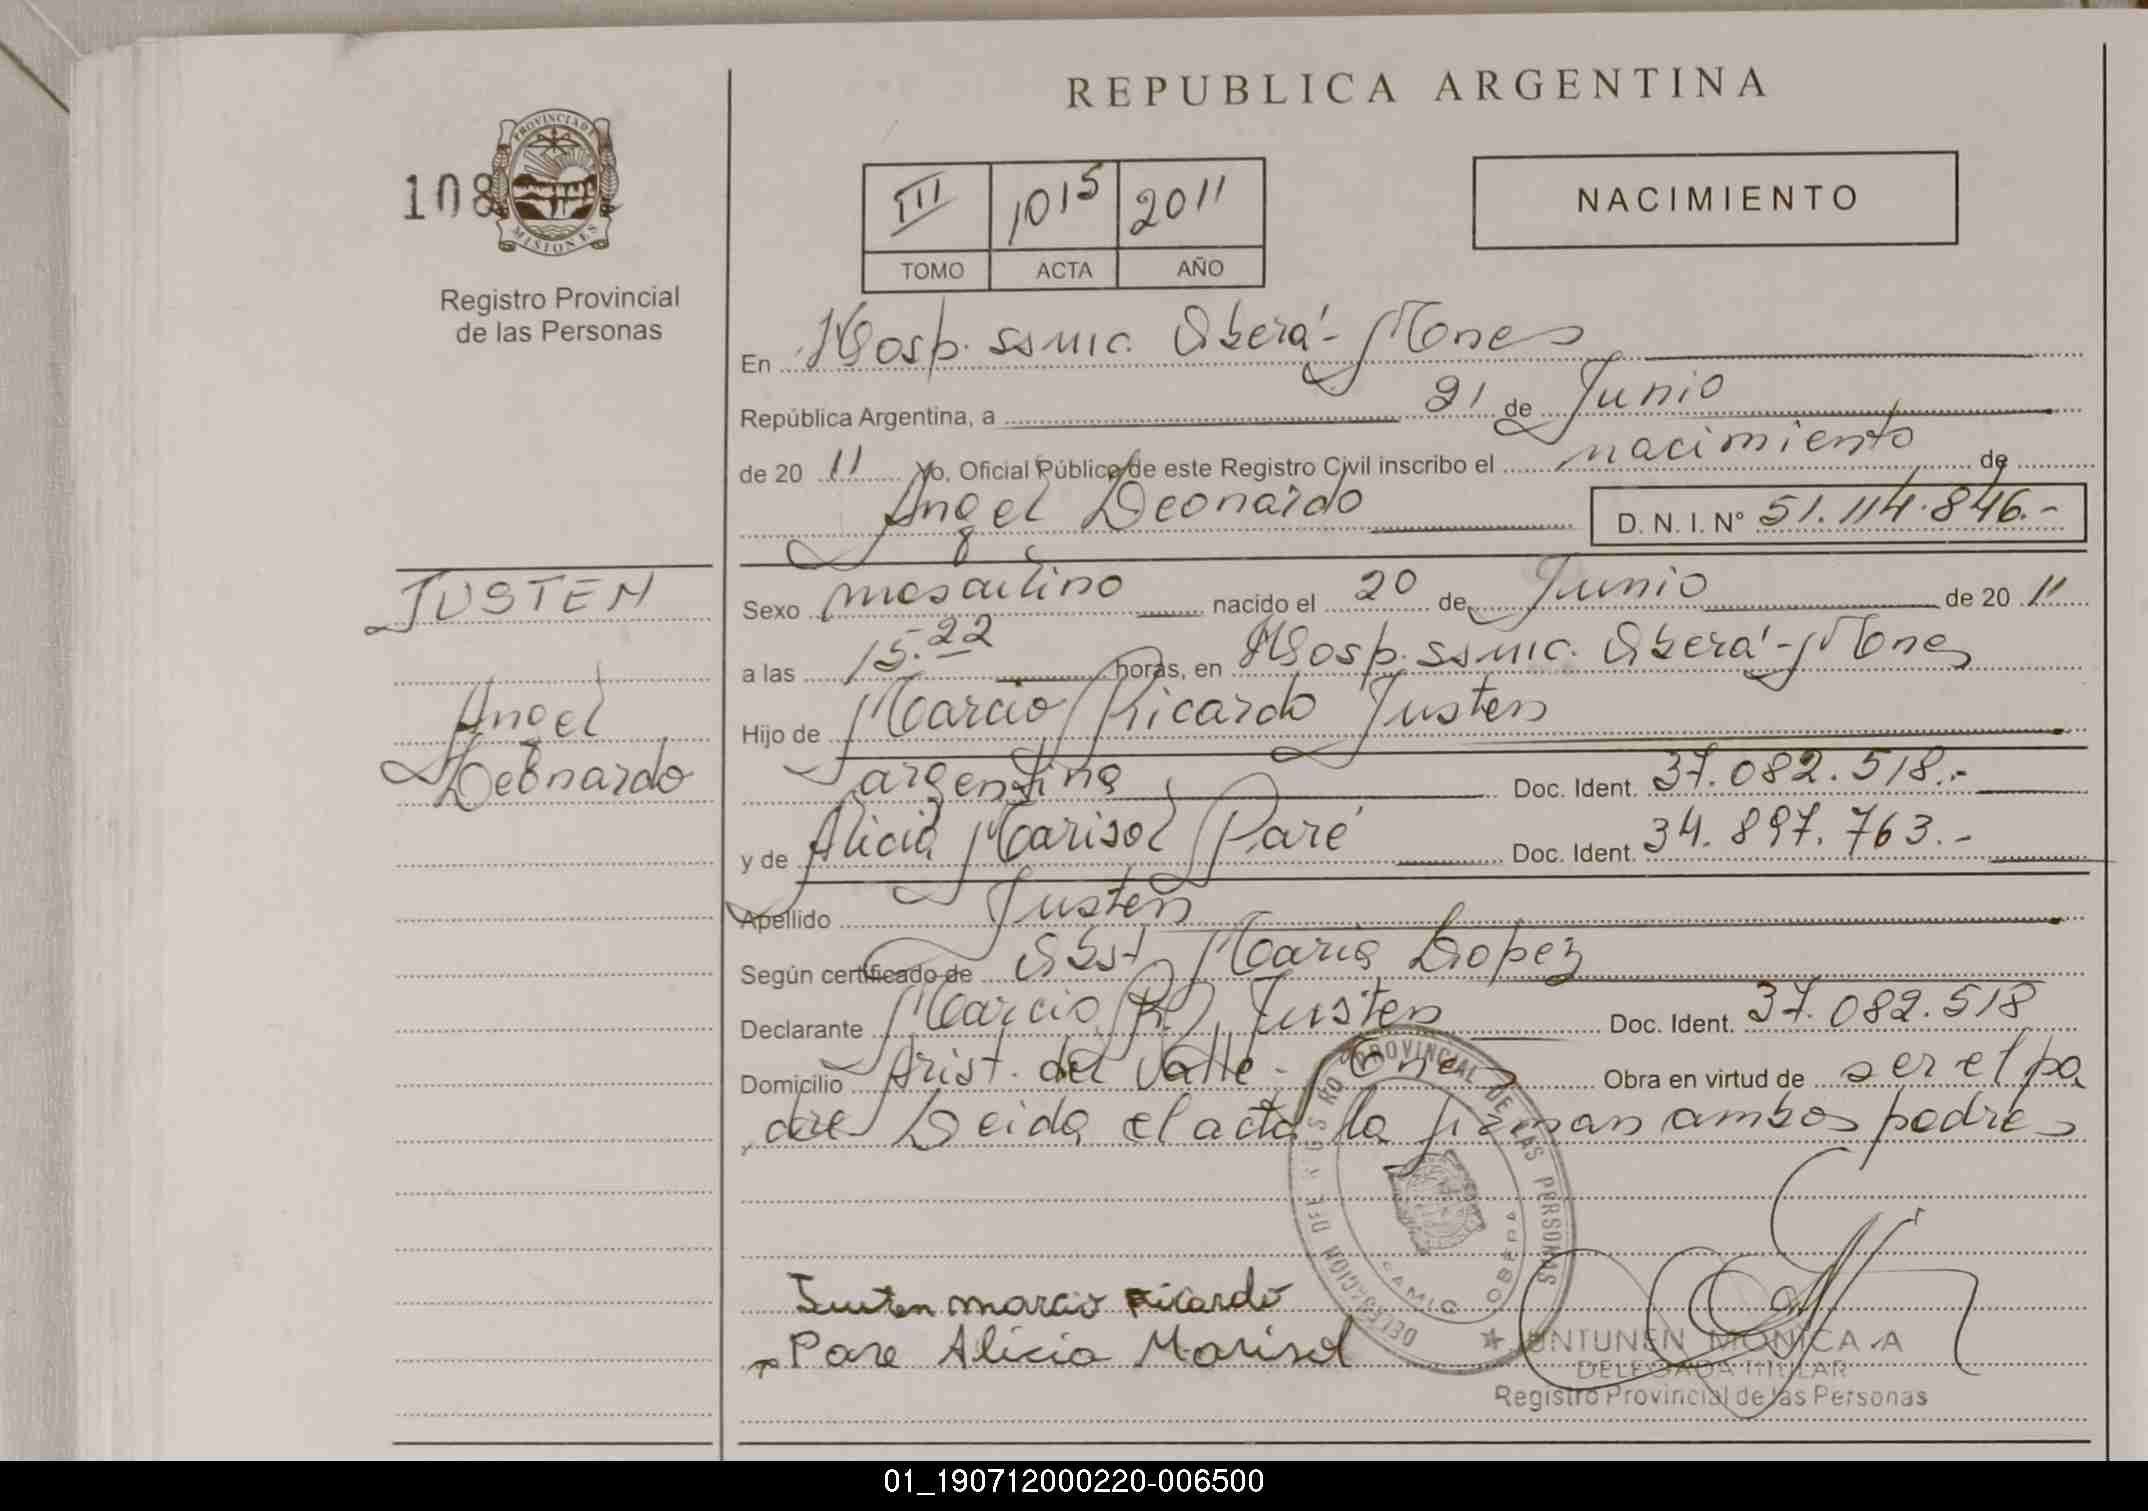 REPUBLICA ARGENTINA
108
PROVINCIA DE
MISIONES
Registro Provincial
de las Personas
III 1015 2011
TOMO ACTA AÑO
NACIMIENTO
En Hosp. SSMIC. Oberá - Mones
República Argentina, a 21 de Junio
de 20 11 Yo, Oficial Público de este Registro Civil inscribo el nacimiento de
Angel Leonardo D. N. I. N° 51.114.846.-
JUSTEN
Angel
Leonardo
Sexo masculino nacido el 20 de Junio de 20 11
a las 15.22 horas, en Hosp. SSMIC. Oberá - Mones
Hijo de Marcio Ricardo Justen
argentina Doc. Ident. 37.082.518.-
y de Alicia Marisol Paré Doc. Ident. 34.897.763.-
Apellido Justen
Según certificado de Obst Maria Lopez
Declarante Marcio R. Justen Doc. Ident. 37.082.518
Domicilio Arist. del Valle - Mones Obra en virtud de ser el pa
dre Leida el acta la firman ambos padres
PROVINCIAL DE LAS PERSONAS
DELEGACION
OBERA
Justen marcio Ricardo
Pare Alicia Marisol
UNTUNEN MONICA A
DELEGADA TITULAR
Registro Provincial de las Personas
01_190712000220-006500